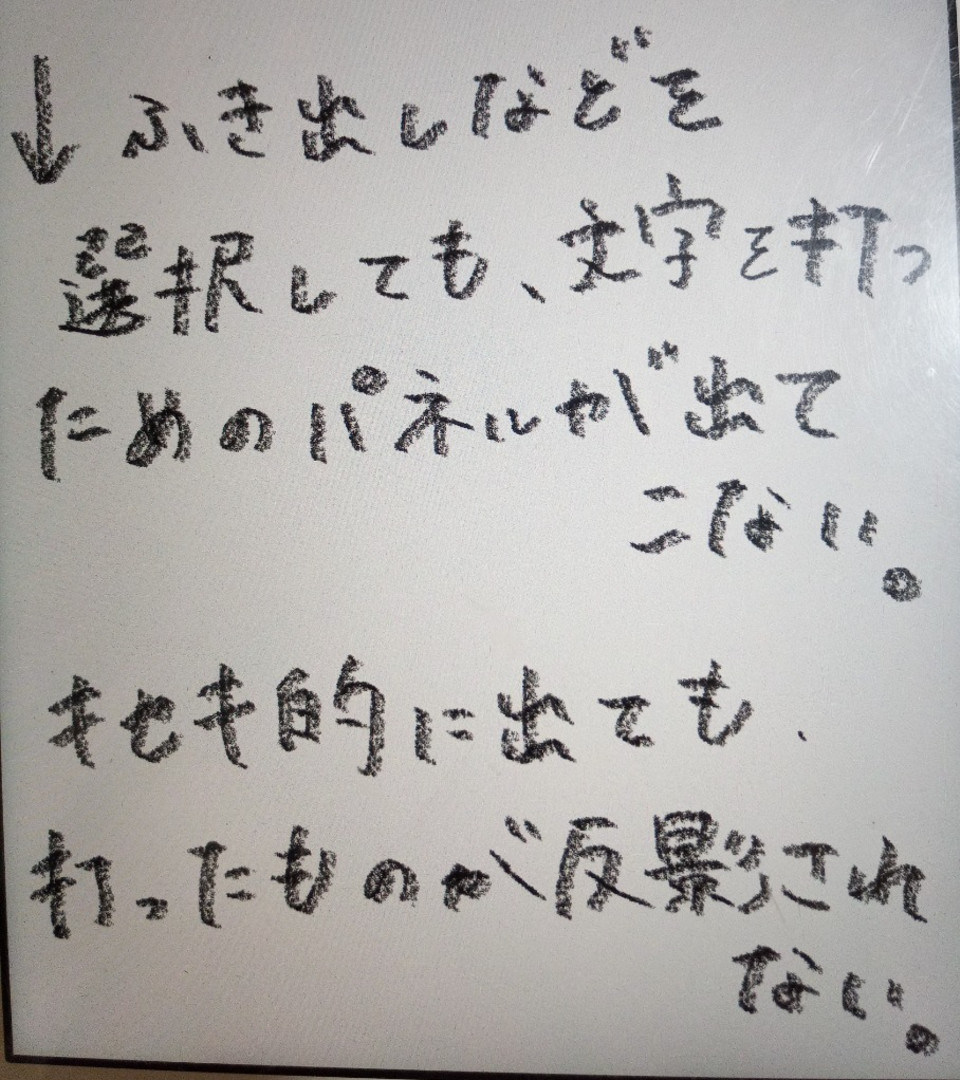 ↓ふき出しなどを
選択しても、文字を打っ
ためのパネルが出て
こない。
キセキ的に出ても、
打ったものが反影され
ない。